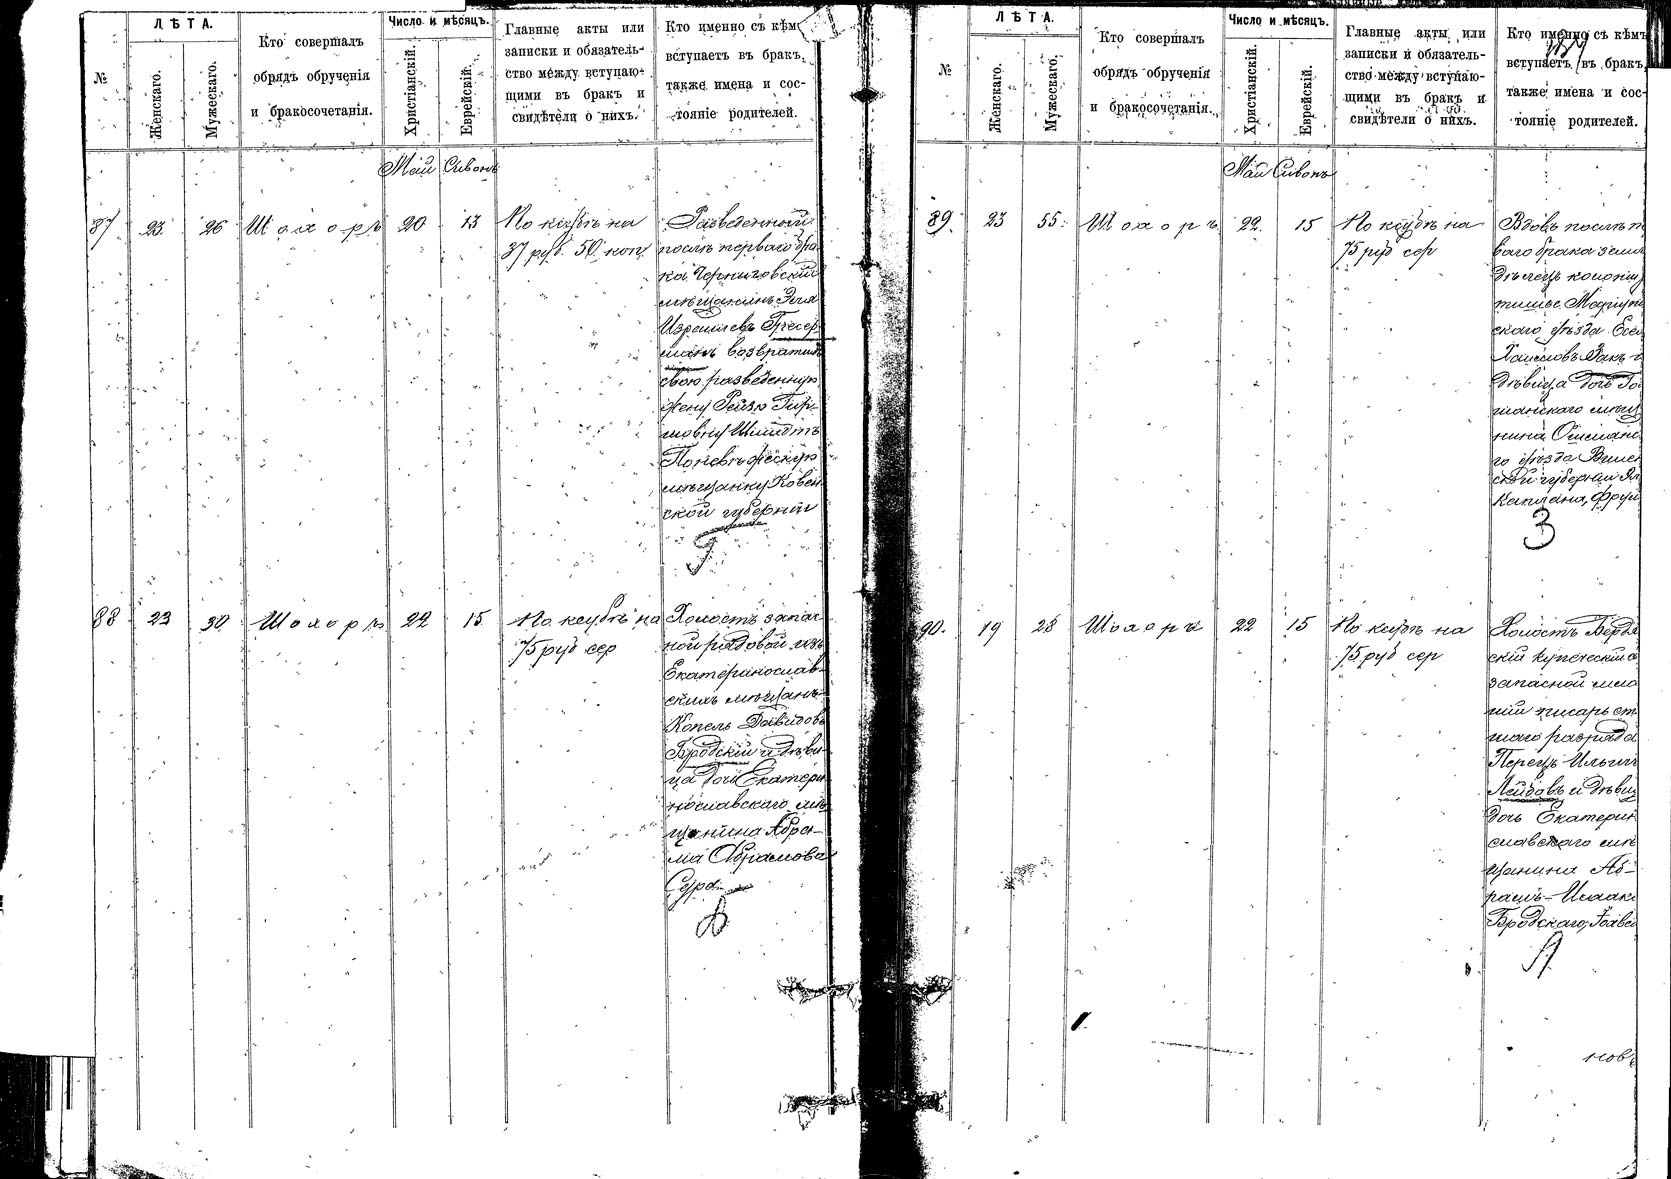 №
ЛѢТА.
Женскаго.
Мужескаго.
Кто совершалъ
обрядъ обрученія
и бракосочетанія.
Число и мѣсяцъ.
Христіанскій.
Еврейскій.
Главные акты или
записки и обязатель-
ство между вступаю-
щими въ бракъ и
свидѣтели о нихъ.
Кто именно съ кѣмъ
вступаетъ въ бракъ,
также имена и сос-
тояніе родителей.
Май Сивонъ
87 23 26 Шохоръ 20 13
По ксубѣ на
37 руб. 50 коп
Разведенный
послѣ перваго бра
ка Черниговскій
мѣщанинъ Эля
Израилевъ
манъ возвратилъ
свою разведенную
жену Рейзю Гир-
шовну Шмидтъ
Поневѣжскую
мѣщанку Ковен
ской губерніи
88 23 30 Шохоръ 22 15
По ксубѣ на
75 руб сер
Холостъ запас
ной рядовой изъ
Екатеринослав-
скихъ мѣщанъ
Копель Давидовъ
Бродскій и дѣви-
ца дочь Екатери
нославскаго мѣ
щанина Абра-
ма Абрамова
Сура
№
ЛѢТА.
Женскаго.
Мужескаго.
Кто совершалъ
обрядъ обрученія
и бракосочетанія.
Число и мѣсяцъ.
Христіанскій.
Еврейскій.
Главные акты или
записки и обязатель-
ство между вступаю-
щими въ бракъ и
свидѣтели о нихъ.
Кто именно съ кѣмъ
вступаетъ въ бракъ,
также имена и сос-
тояніе родителей.
Май Сивонъ
89. 23 55. Шохоръ 22. 15
По ксубѣ на
75 руб сер
Вдовъ послѣ п
ваго брака земл
дѣлецъ колоніи
Маріуп
скаго уѣзда
Хаимовъ Закъ и
дѣвица дочь
шанскаго мѣщ
нина Ошмянс
го уѣзда Вилен
ской губерніи
Каплана,
З
90. 19 28 Шохоръ 22 15
По ксубѣ на
75 руб сер
Холостъ Бердя
скій купеческій с
запасной мла
шій писарь ст
шаго разряда
Перецъ Ильичъ
Лейбовъ и дѣвиц
дочь Екатерин
славскаго мѣ
щанина Аб-
рамъ-Исаака
Бродскаго,
новъ